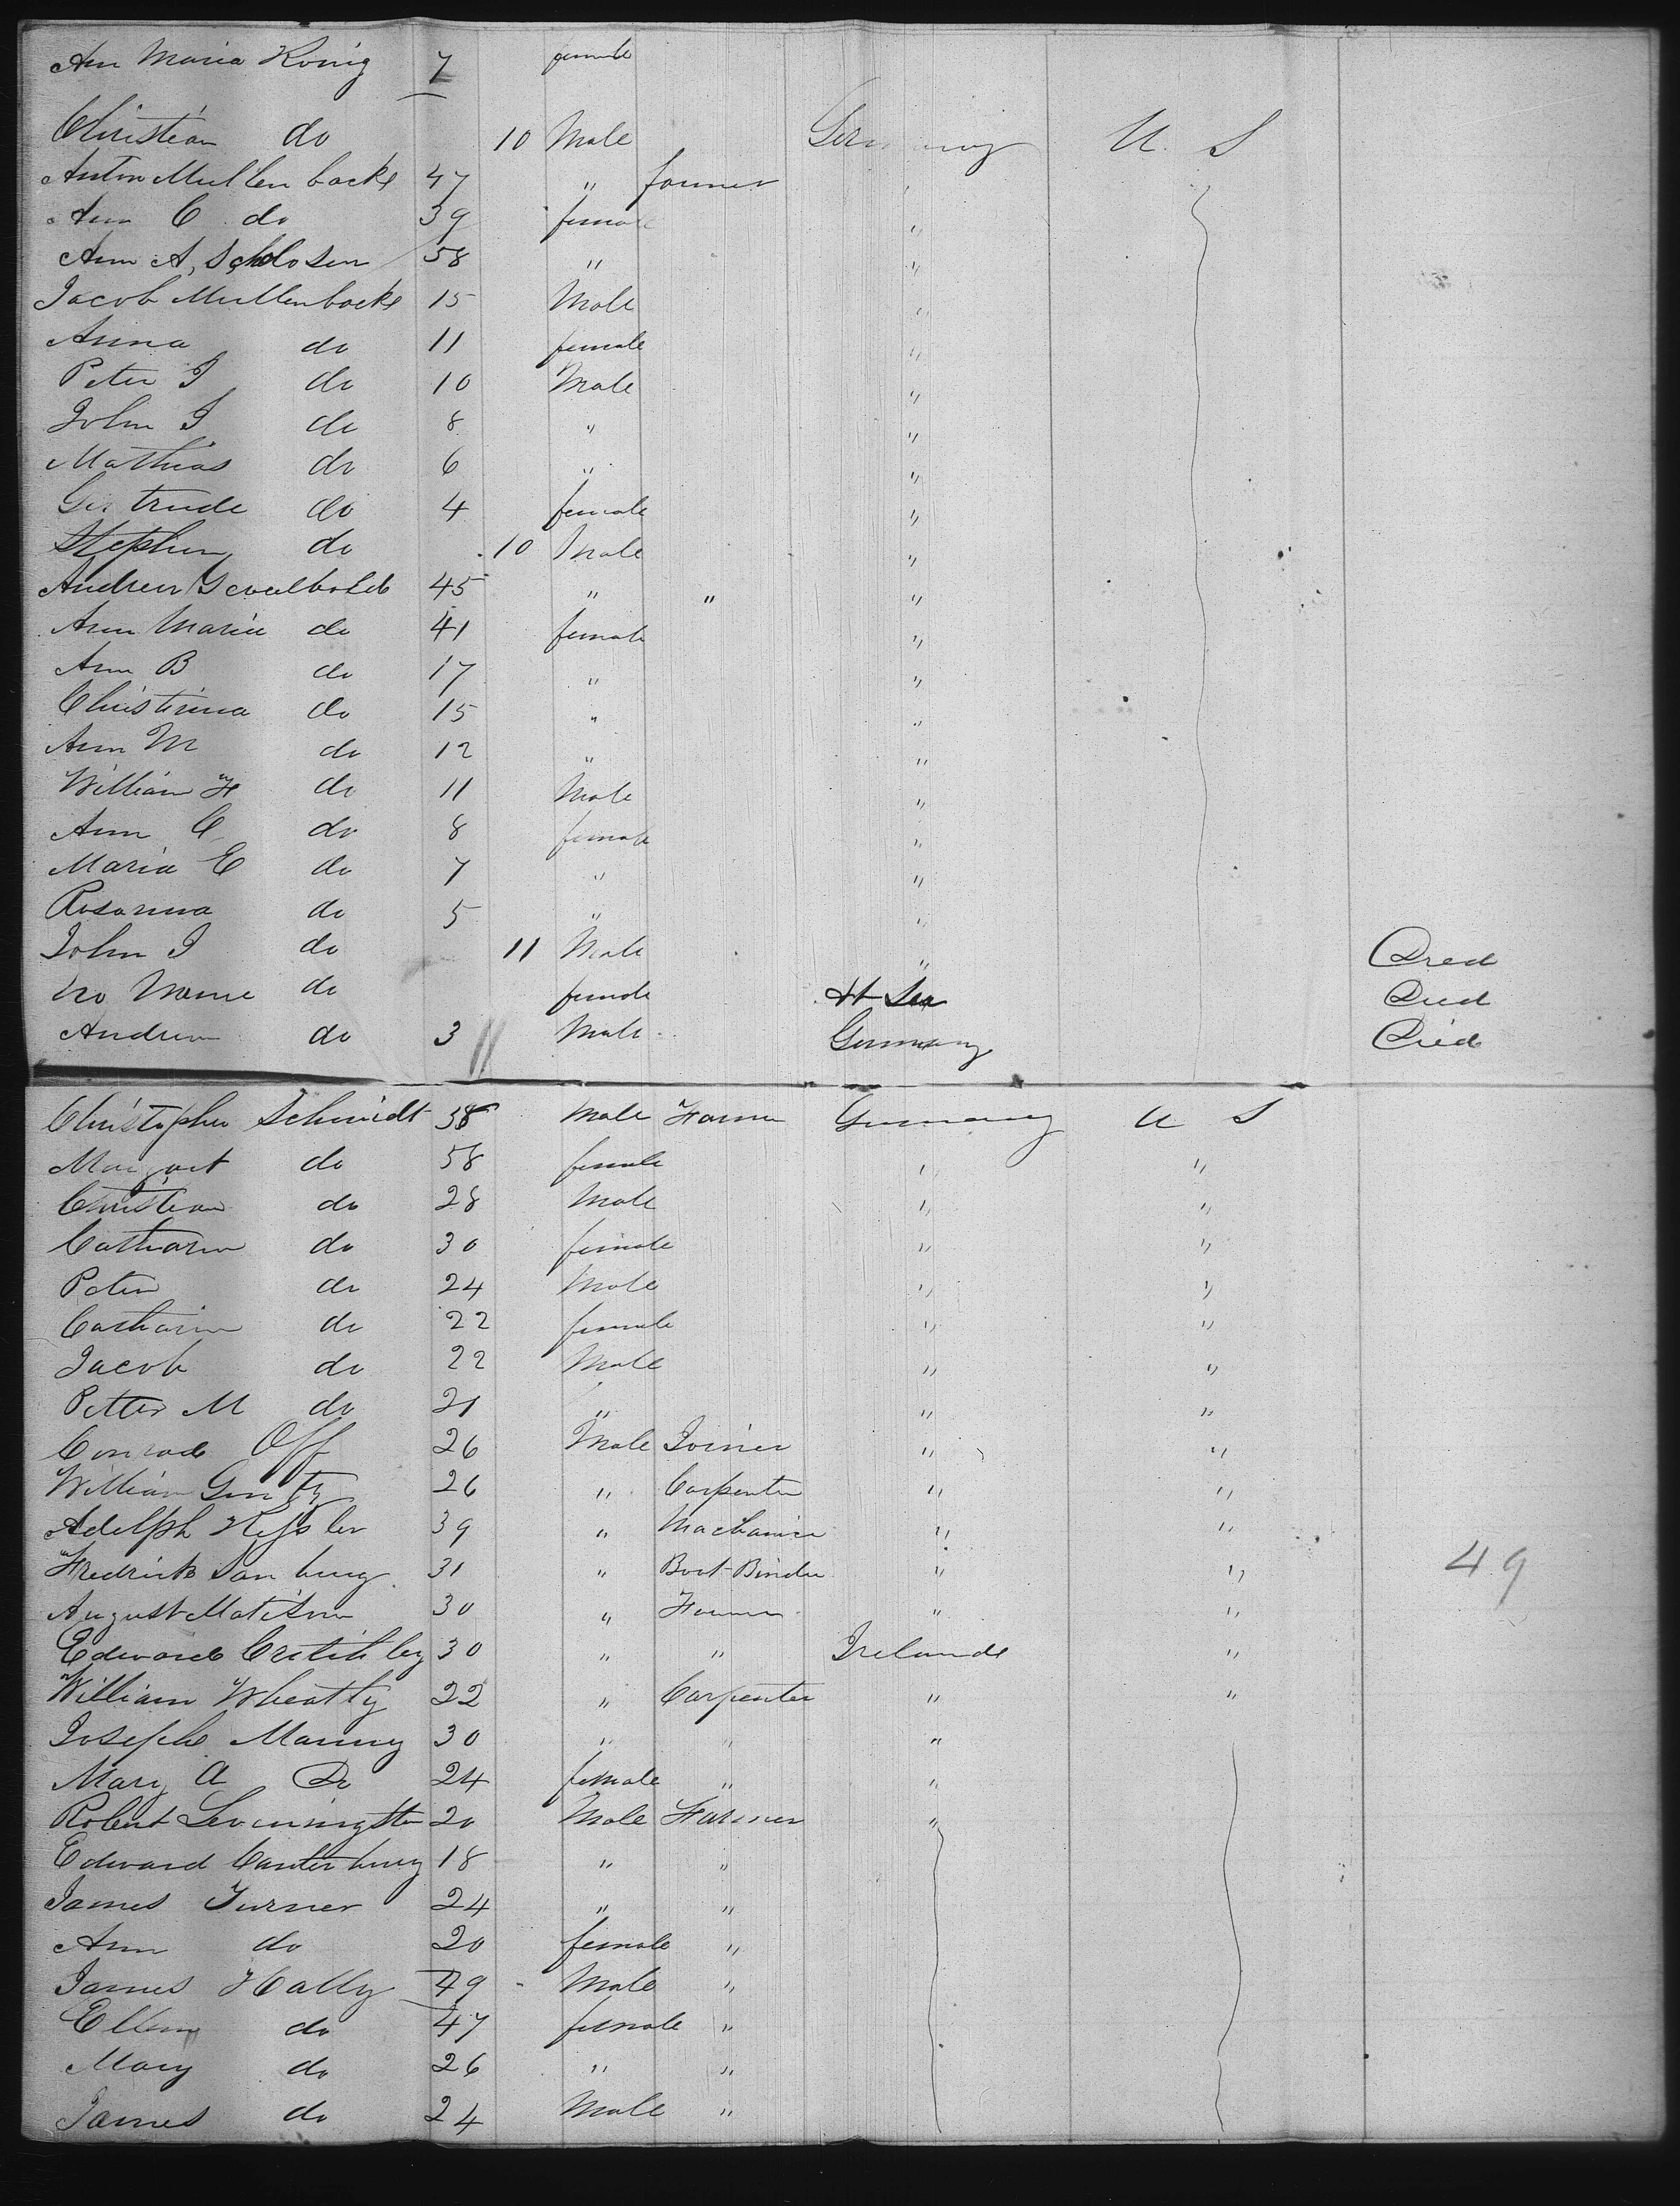 Ann Maria König 7 female
Christian do 10 Male Germany U. S
Anton Mullenbacke 47 " farmer "
Ann C. do 39 female "
Ann A, Schlosen 58 " "
Jacob Mullenbacke 15 Male "
Anna do 11 female "
Peter J do 10 Male "
John J do 8 " "
Mathias do 6 " "
Gertrude do 4 female "
Stephen do 10 Male "
Andrew 45 " " "
Ann Maria do 41 female "
Ann B do 17 " "
Christinna do 15 " "
Ann M do 12 " "
William H do 11 Male "
Ann C do 8 female "
Maria E do 7 " "
Rosanna do 5 " "
John J do 11 Male " Died
No Name do female At Sea Died
Andrew do 3 Male Germany Died
Christopher Schmidt 58 Male Farmer Germany U S
Margaret do 58 female " "
Christian do 28 Male " "
Catharin do 30 female " "
Peter do 24 Male " "
Catharin do 22 female " "
Jacob do 22 Male " "
Petter M do 21 " " "
Conrad Off 26 Male Joiner " "
William 26 " Carpenter " "
Adolph Kessler 39 " Machanic " "
Fredrick 31 " Boot-Binder " " 49
August Matison 30 " Farmer " "
Edward Critchley 30 " " Ireland "
William Wheatly 22 " Carpenter " "
Joseph Manny 30 " " "
Mary A Do 24 female " "
Robert Levinington 20 Male Farmer "
Edward Canterbury 18 " "
James Turner 24 " "
Ann do 20 female "
James Hally 49 Male "
Ellen do 47 female "
Mary do 26 " "
James do 24 Male "